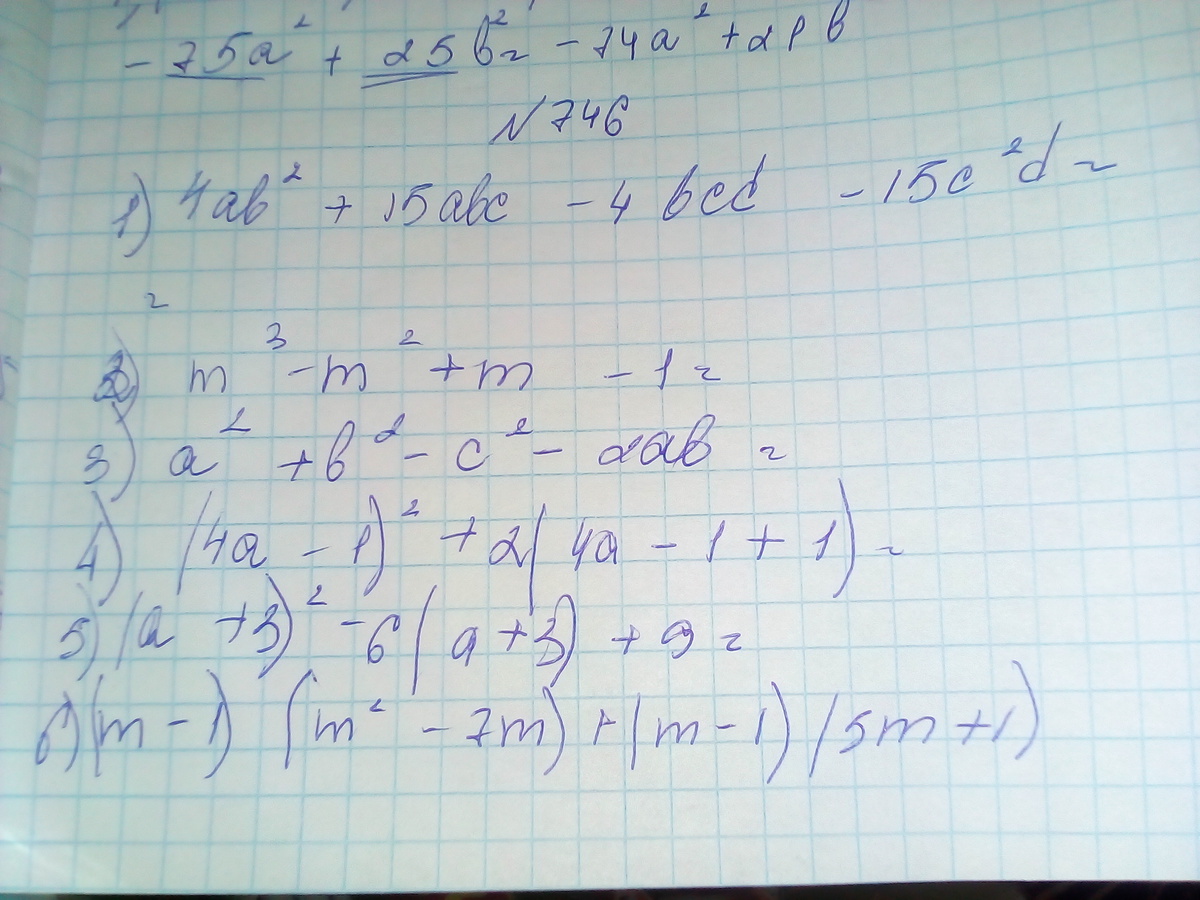 - 75a² + 25b² = - 74a² + 2p b
N 746
1) 4ab² + 15abc - 4bcd - 15c²d =
=
2) m³ - m² + m - 1 =
3) a² + b² - c² - 2ab =
4) (4a - 1)² + 2(4a - 1 + 1) =
5) (a + 3)² - 6(a + 3) + 9 =
6) (m - 1) (m² - 7m) + (m - 1) (5m + 1)